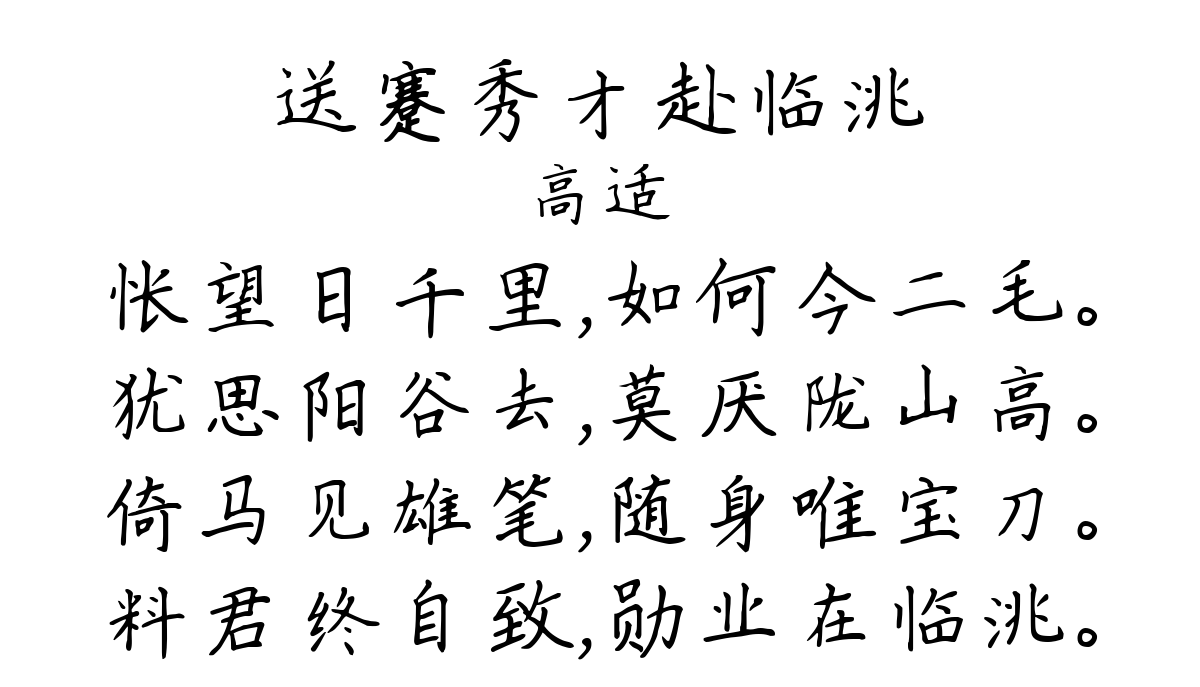 送蹇秀才赴临洮
高适
怅望日千里,如何今二毛。
犹思阳谷去,莫厌陇山高。
倚马见雄笔,随身唯宝刀。
料君终自致,勋业在临洮。